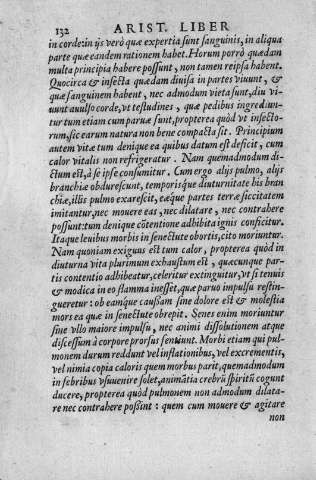 132 ARIST. LIBER
in corde: in ijs verò quæ expertia sunt sanguinis, in aliqua
parte quæ eandem rationem habet. Horum porrò quædam
multa principia habere possunt, non tamen reipsa habent.
Quocirca & insecta quædam diuisa in partes viuunt, &
quæ sanguinem habent, nec admodum vieta sunt, diu vi-
uunt auulso corde, vt testudines, quæ pedibus ingrediun-
tur tum etiam cum paruæ sunt, propterea quòd vt insecto-
rum, sic earum natura non bene compacta sit. Principium
autem vitæ tum denique ea quibus datum est deficit, cum
calor vitalis non refrigeratur. Nam quemadmodum di-
ctum est, à se ipse consumitur. Cum ergo alijs pulmo, alijs
branchiæ obdurescunt, temporisque diuturnitate his bran
chiæ, illis pulmo exarescit, eæque partes terræ siccitatem
imitantur, nec mouere eas, nec dilatare, nec contrahere
possunt: tum denique cōtentione adhibita ignis conficitur.
Itaque leuibus morbis in senectute obortis, citò moriuntur.
Nam quoniam exiguus est tum calor, propterea quòd in
diuturna vita plurimum exhaustum est, quæcunque par-
tis contentio adhibeatur, celeriter extinguitur, vt si tenuis
& modica in eo flamma inesset, quæ paruo impulsu restin-
gueretur: ob eamque caussam sine dolore est & molestia
mors ea quæ in senectute obrepit. Senes enim moriuntur
sine vllo maiore impulsu, nec animi dissolutionem atque
discessum à corpore prorsus sentiunt. Morbi etiam qui pul-
monem durum reddunt vel inflationibus, vel excrementis,
vel nimia copia caloris quem morbus parit, quemadmodum
in febribus vsuuenire solet, animātia crebrū spiritū cogunt
ducere, propterea quòd pulmonem non admodum dilata-
re nec contrahere possint: quem cum mouere & agitare
non